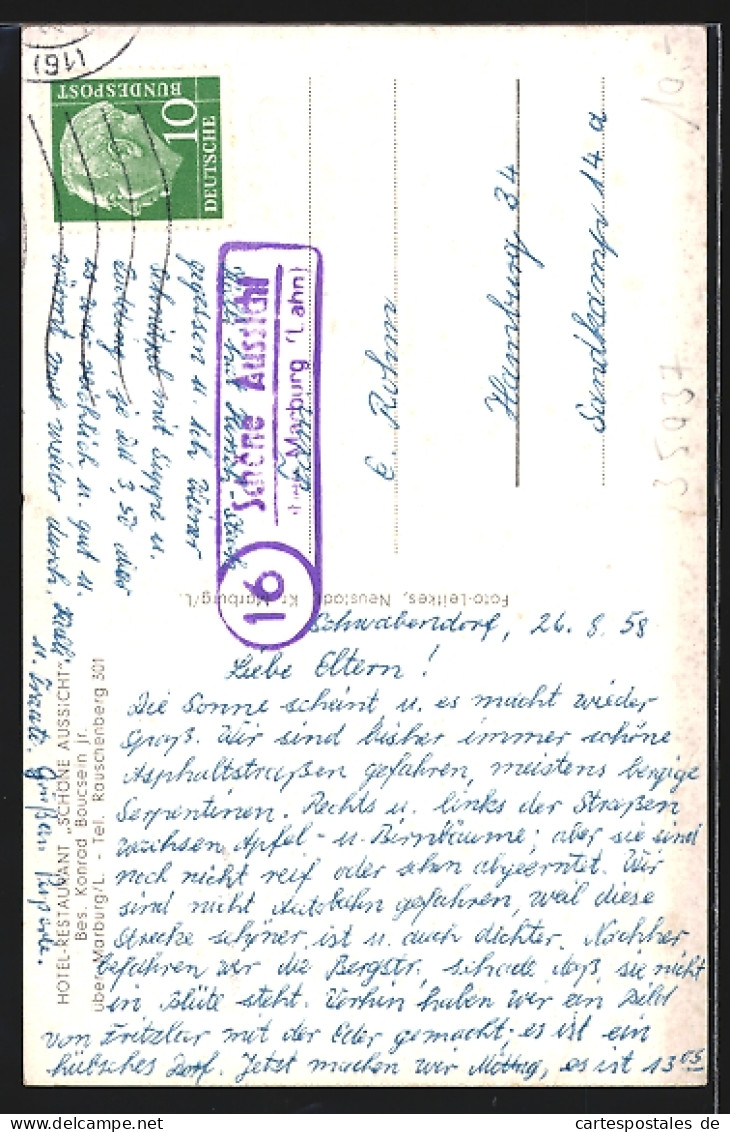 Schwabendorf, 26. 8. 58
Liebe Eltern!
Die Sonne scheint u. es macht wieder
Spaß. Wir sind bisher immer schöne
Asphaltstraßen gefahren, meistens bergige
Serpentinen. Rechts u. links der Straßen
wachsen Apfel- u. Birnbäume; aber sie sind
noch nicht reif oder schon abgeerntet. Wir
sind nicht Autobahn gefahren, weil diese
Strecke schöner ist u. auch dichter. Nachher
befahren wir die Bergstr., schade daß sie nicht
in Blüte steht. Vorhin haben wir ein Bild
von Fritzlar mit der Eder gemacht; es ist ein
hübsches Dorf. Jetzt machen wir Mittag, es ist 13 05
gegessen u. ich Wiener
Schnitzel mit Suppe u.
je DM 3,50 aber
es war reichlich u. gut u.
weiter durch.
Grüßen
HOTEL-RESTAURANT „SCHÖNE AUSSICHT"
Bes. Konrad Boucsein jr.
über Marburg/L. - Tel. Rauschenberg 301
Foto-Leitkes, Neustadt, Kr. Marburg/L.
16
Schöne Aussicht
über Marburg (Lahn)
(16)
10
DEUTSCHE
BUNDESPOST
E. Rohm
Hamburg 34
Sandkamp 14 a
10,-
35937
Visit our shop at:
www.cartespostales.de